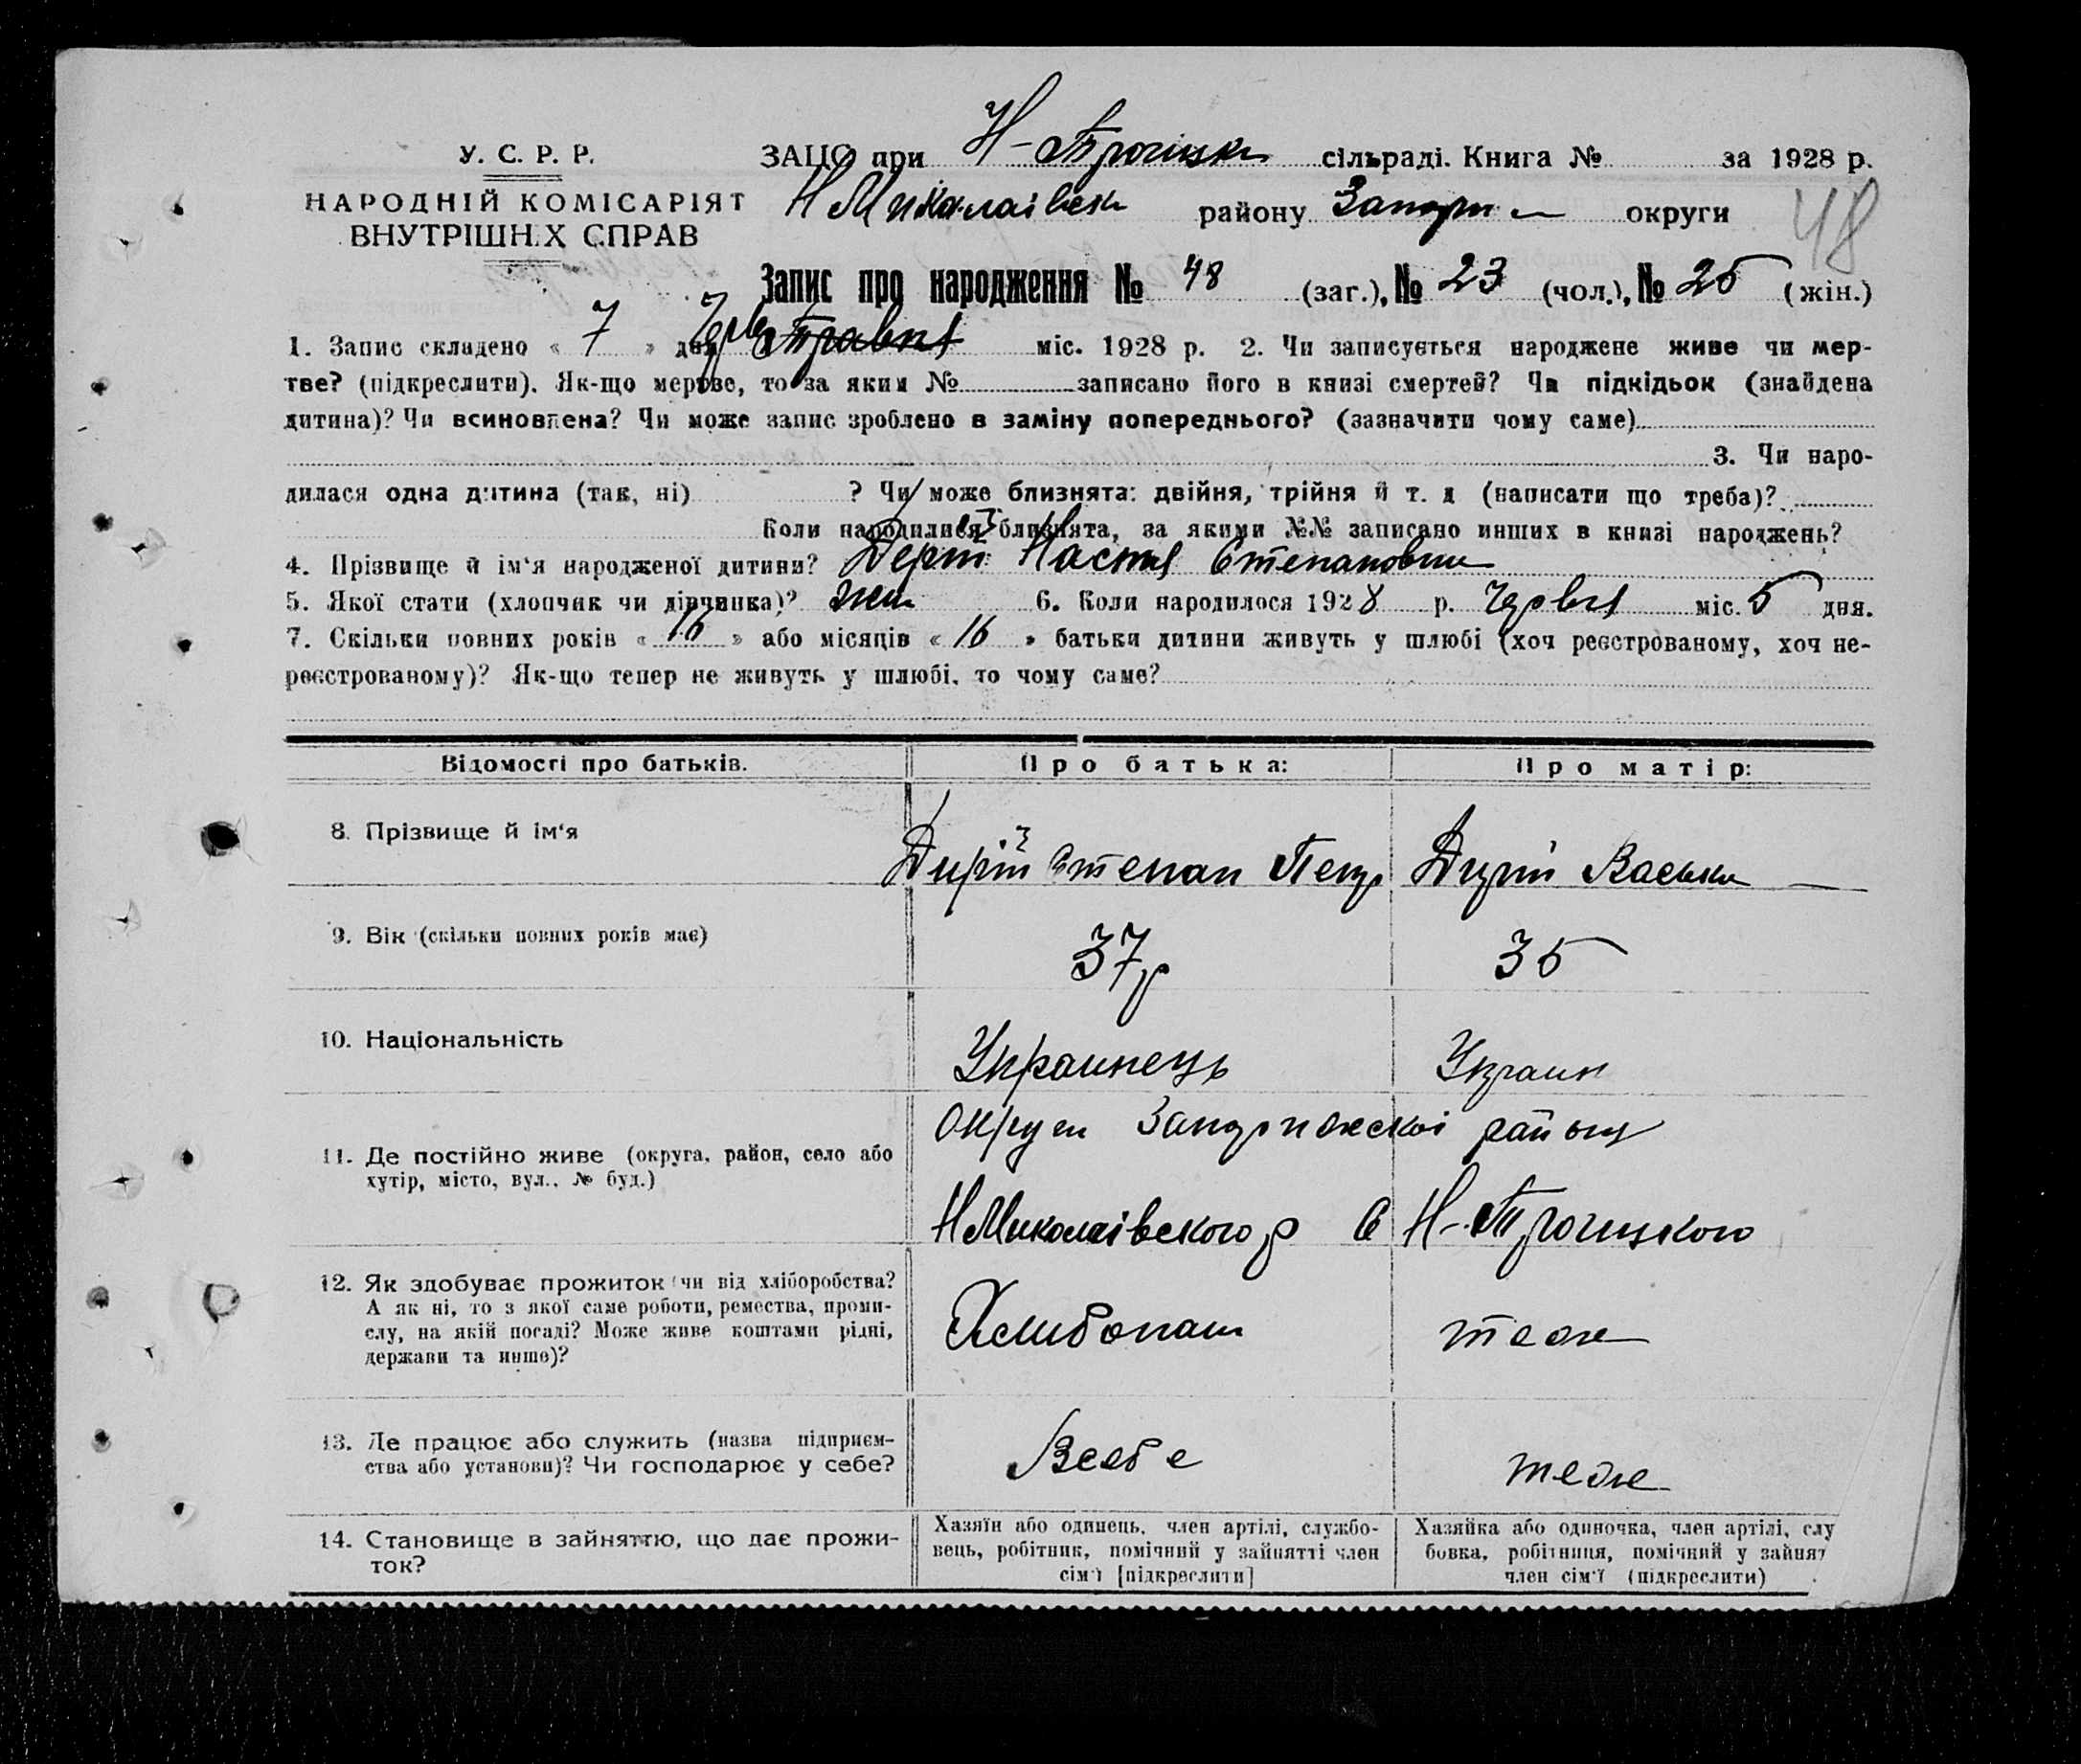 У. С. Р. Р.
НАРОДНІЙ КОМІСАРІЯТ
ВНУТРІШНІХ СПРАВ
ЗАЦС при Н-Троицьк сільраді. Книга № за 1928 р.
Н Миколаівськ району Запор округи
48
Запис про народження № 48 (заг.), № 23 (чол.), № 25 (жін.)
1. Запис складено « 7 » дня Черв Травня міс. 1928 р. 2. Чи записується народжене живе чи мер-
тве? (підкреслити). Як-що мертве, то за яким № записано його в книзі смертей? Чи підкідьок (знайдена
дитина)? Чи всиновлена? Чи може запис зроблено в заміну попереднього? (зазначити чому саме)
3. Чи наро-
дилася одна дитина (так, ні) ? Чи може близнята: двійня, трійня й т. д (написати що треба)?
Коли народилися близнята, за якими №№ записано инших в книзі народжень?
4. Прізвище й ім'я народженої дитини? Настя Степановна
5. Якої стати (хлопчик чи дівчинка)? жен 6. Коли народилося 1928 р. Червня міс. 5 дня.
7. Скільки повних років « 16 » або місяців « 16 » батьки дитини живуть у шлюбі (хоч реєстрованому, хоч не-
реєстрованому)? Як-що тепер не живуть у шлюбі, то чому саме?
Відомості про батьків.
Про батька:
Про матір:
8. Прізвище й ім'я
Степан Петр
9. Вік (скільки повних років має)
37р
35
10. Національність
Украинець
Украин
11. Де постійно живе (округа, район, село або
хутір, місто, вул., № буд.)
Округи Запорижскоі району
Н Миколаівского р С Н-Троицкого
12. Як здобуває прожиток (чи від хліборобства?
А як ні, то з якої саме роботи, ремества, проми-
слу, на якій посаді? Може живе коштами рідні,
держави та инше)?
Хлибопаш
тоже
13. Де працює або служить (назва підприєм-
ства або установи)? Чи господарює у себе?
Всебе
тоже
14. Становище в зайняттю, що дає прожи-
ток?
Хазяїн або одинець, член артілі, службо-
вець, робітник, помічний у зайнятті член
сім'ї [підкреслити]
Хазяйка або одиночка, член артілі, слу
бовка, робітниця, помічний у зайнят
член сім'ї (підкреслити)